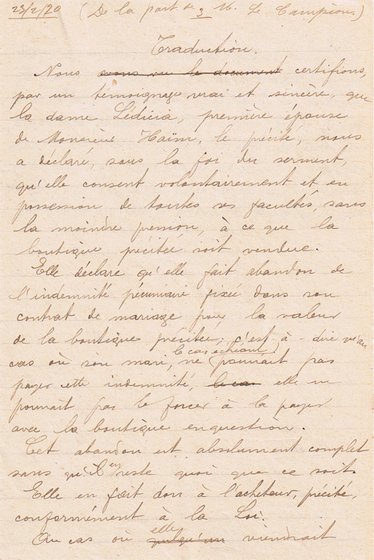 23/2/20 (De la part de M. Le Campion)
Traduction.
Nous avons vu le document certifions,
par un témoignage vrai et sincère, que
la dame Lédicia, première épouse
de Monsieur Haïm, le précité, nous
a déclaré, sous la foi du serment,
qu'elle consent volontairement et en
possession de toutes ses facultés, sans
la moindre pression, à ce que la
boutique précitée soit vendue.
Elle déclare qu'elle fait abandon de
l'indemnité pécuniaire fixée dans son
contrat de mariage pour la valeur
de la boutique précitée; c'est-à-dire qu'au
cas où son mari, le cas échéant, ne pourrait pas
payer cette indemnité, le cas elle ne
pourrait pas le forcer à la payer
avec la boutique en question.
Cet abandon est absolument complet
sans qu'il en reste quoi que ce soit.
Elle en fait don à l'acheteur, précité,
conformément à la Loi.
Au cas où elle quelqu'un viendrait